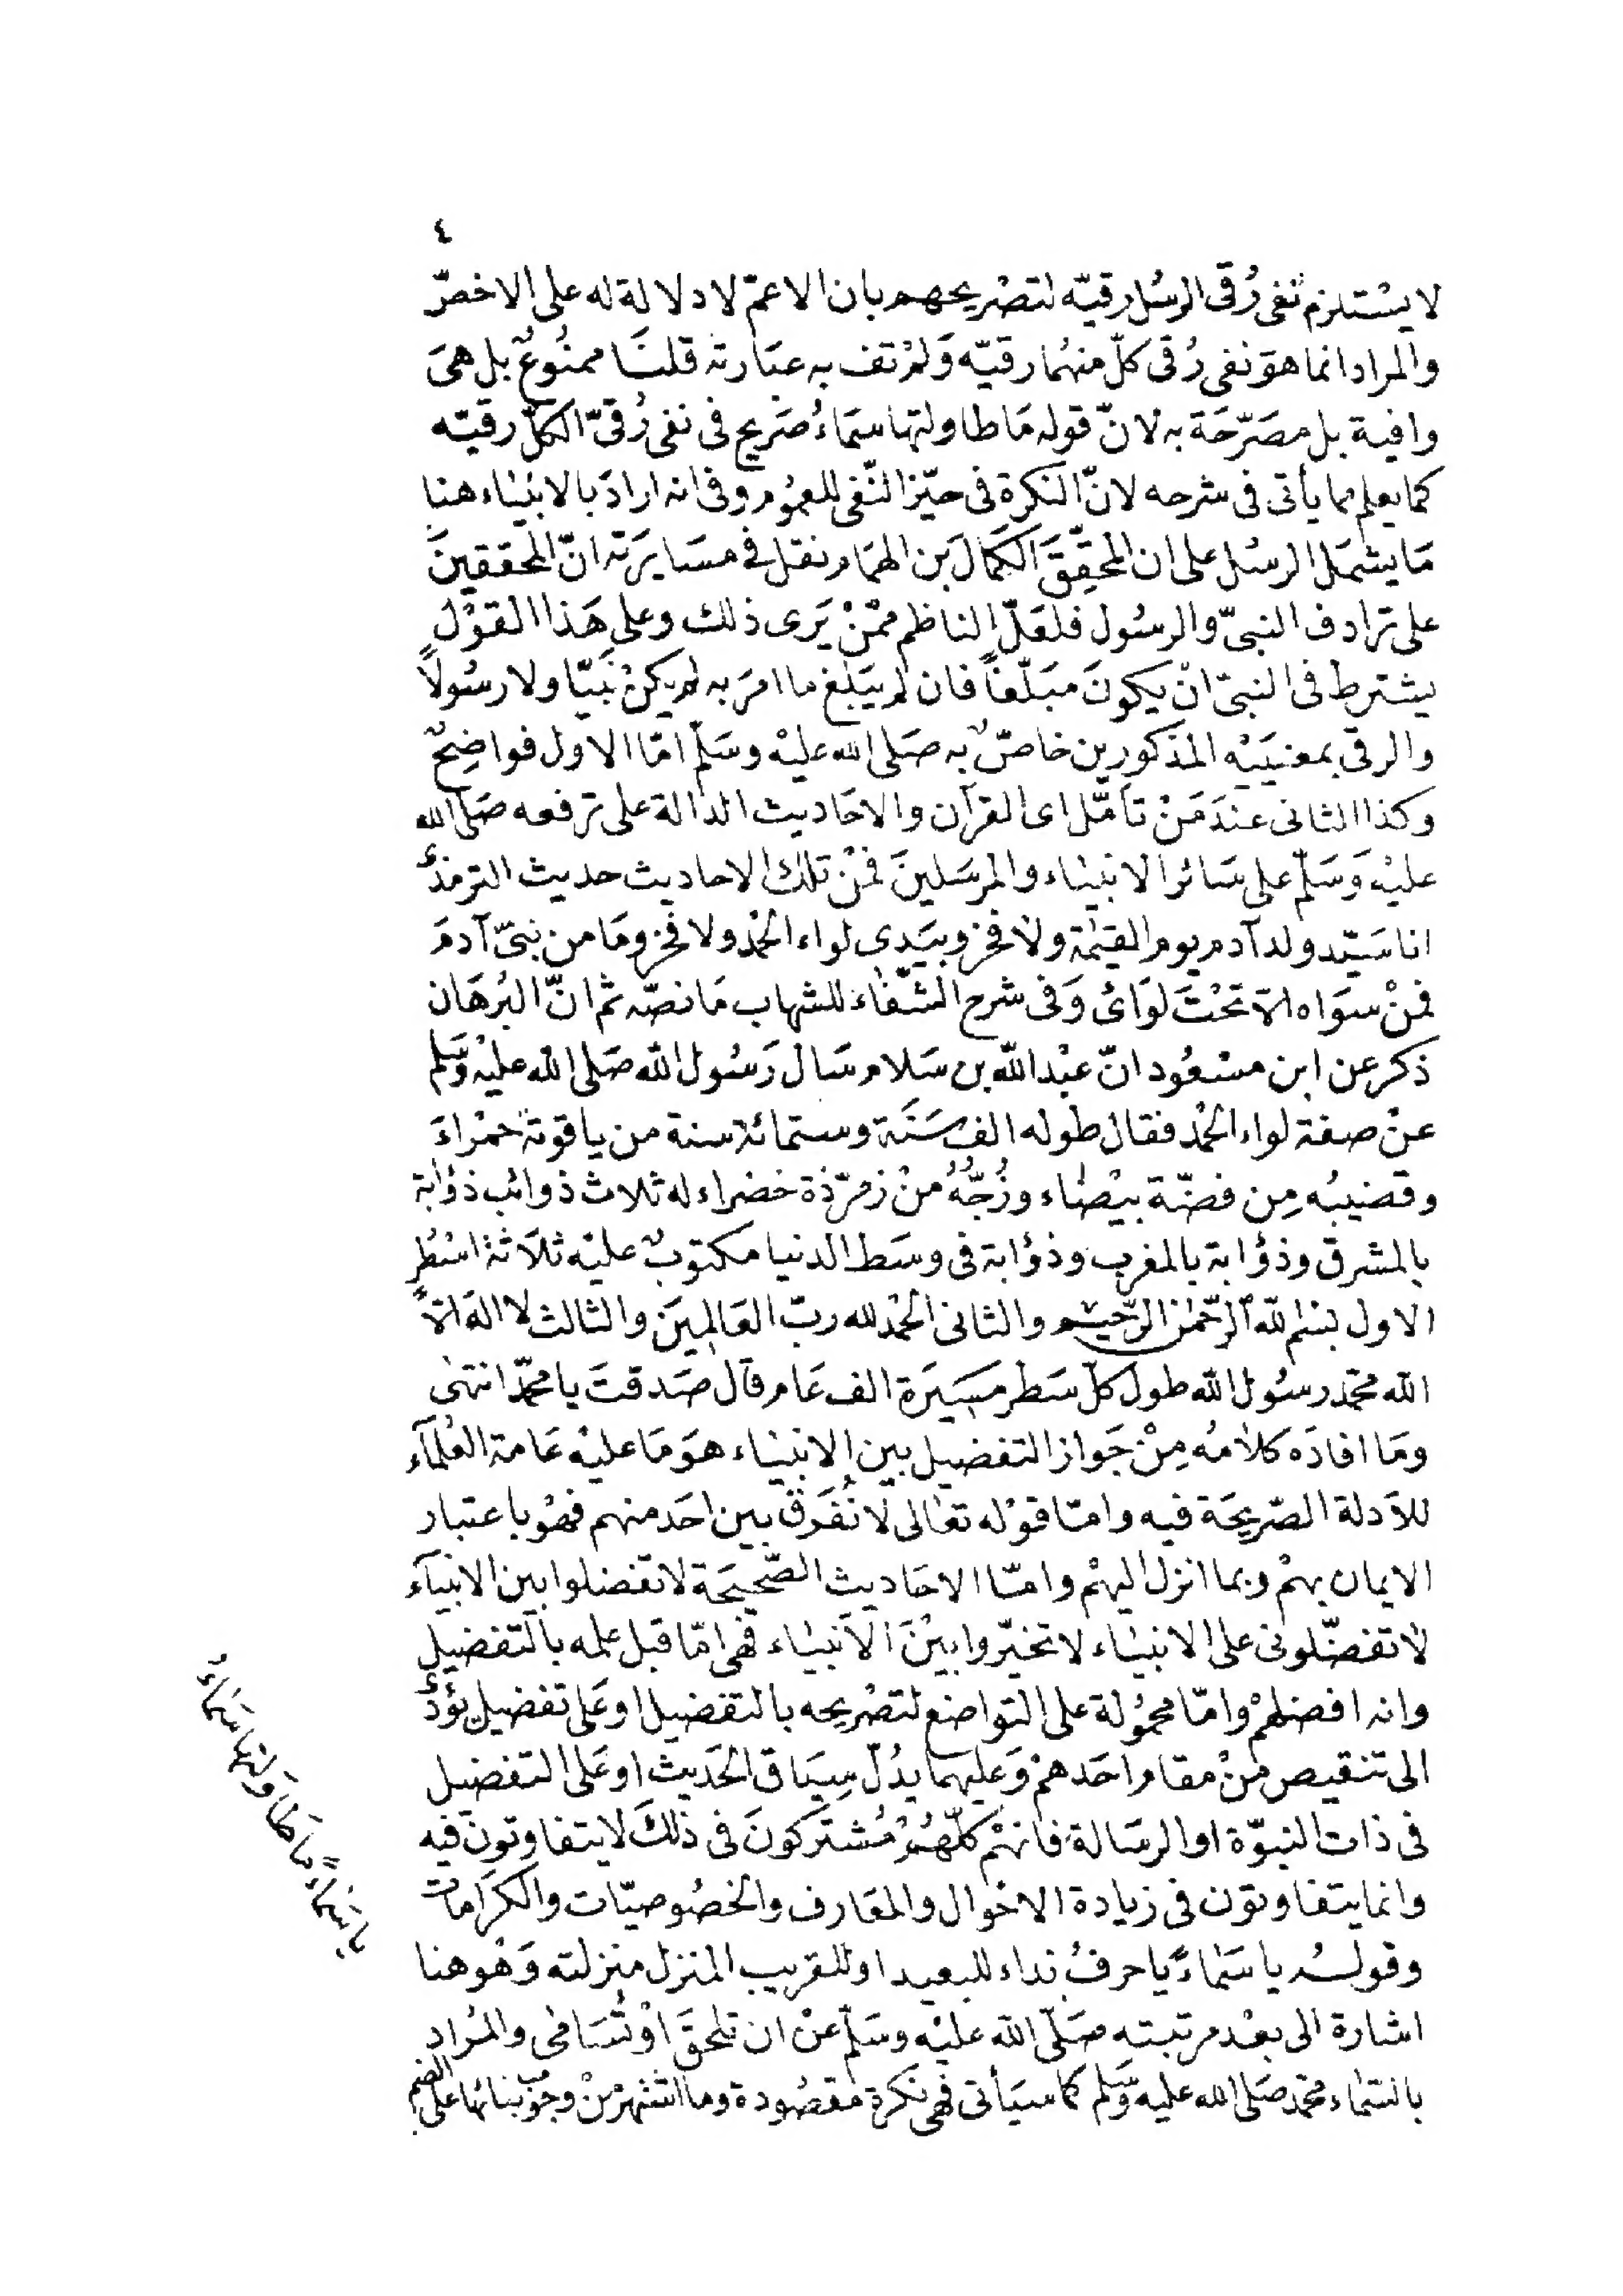 ٤
لا يسْتلزم نفى رُقى الرسُل رقيّه لتصْريحهم بان الاعمّ لا دلالة له على الاخصّ
والمراد انما هوَ نفى رُقى كلّ منهُما رقيّه وَلمْ تف به عبَارته قلنَا ممنُوعٌ بل هىَ
وافية بل مصَرّحَة به لانّ قوله مَا طاولتها سَماءُ صَريح فى نفى رُقىّ الكلّ رقيّه
كما يعلم مما يأتى فى شرحه لانّ النكرة فى حيّز النّفى للعمُوم وفى انه ارادَ بالانبيَاء هنا
مَا يشمَل الرسُل على ان المحقِّقَ الكمَالَ بن الهمَام نقل فى مسَايرَته انّ المحققينَ
على ترادف النبىّ والرسُول فلعَلّ الناظم ممّنْ يَرى ذلك وعلى هَذا القوْل
يشترط فى النبىّ انْ يكونَ مبَلّغاً فان لم يبَلغ ما امرَ به لم يكنْ نَبيّا ولا رسُولاً
والرقى بمعنيَيْه المذكورين خاصٌّ به صَلى الله عليْه وسَلّم امّا الاول فواضِحٌ
وكذا الثانى عندَ مَنْ تأمّل اى القرآن والاحَاديث الدالة على ترفعه صَلى الله
عليْه وَسَلّم على سَائر الانبيَاء والمرسَلينَ فمنْ تلك الاحاديث حديث الترمذى
انا سَيّد ولد آدم يوم القيٰمة ولا فخر وبيَدى لواء الحمْد ولا فخر ومَا من نبىّ آدمَ
فمنْ سوَاه الا تحْتَ لوَائى وَفى شرح الشّفاء للشهاب مَا نصّه ثم انّ البُرهَان
ذكر عن ابن مسْعُود انّ عبْد الله بن سَلام سَال رَسُول الله صَلى الله عليْه وسَلم
عنْ صفة لواء الحمْد فقال طوله الف سَنَة وستمائة سنة من ياقوتة حمْراءَ
وقضيبُه مِن فضّة بيْضاء وزُجُّهُ منْ زمرّذة خضراء له ثلاث ذوائب ذؤابة
بالمشرق وذؤابة بالمغرب وذؤابة فى وسَط الدنيا مكتوبٌ عليْه ثلاَثة اسْطُر
الاول بسْم الله الرّحمٰن الرّحيم والثانى الحمْد لله ربّ العَالمِينَ والثالث لا الهَ الاّ
الله محمّد رسُول الله طول كلّ سَطر مسِيرَة الف عَام قال صَدقتَ يا محمّد انتهٰى
ومَا افادَه كلامُه مِنْ جَواز التفضيل بين الانبيَاء هوَ مَا عليْه عَامة العُلمآء
للأدلة الصّريحَة فيه وامّا قوْله تعَالى لا نُفرّق بين احَد منهم فهْو باعتبار
الايمان بهمْ وبما انزل اليهمْ وامّا الاحَاديث الصّحيحَة لا تفضلوا بين الانبيآء
لا تفضّلونى على الانبيَاء لا تخيّروا بيْنَ الأنبيَاء فهى امّا قبل علمه بالتفضيل
وانه افضلهمْ وامّا محمُولة على التواضع لتصْريحه بالتفضيل او عَلى تفضيل يؤدى
الى تنقيص منْ مقام احَدهمْ وَعليهما يدُلّ سِيَاق الحَديث او عَلى التفضيل
فى ذات النبوّة او الرسَالة فانهمْ كلّهُمْ مُشتَركونَ فى ذلكَ لا يتفاوتونَ فيه
وانما يتفاوتون فى زيادة الاحْوال والمعَارف والخصُوصيّات والكرَامات
وقولُه يا سَماءً يا حرفُ نداء للبعيد او للقريب المنزل منزلته وَهْو هنا
اشارة الى بعْد مرتبته صَلّى الله عليْه وسَلّم عنْ ان تلحقَ اوْ تُسَامٰى والمُراد
بالسَماء محمّد صَلى الله عليه وسَلم كما سيَأتى فهى نكرة مقصُودة وما اشتهرَ منْ وجُوب بنائها على الضم
يا سَمَاءً مَا طَاوَلتْهَا سَمَاءُ